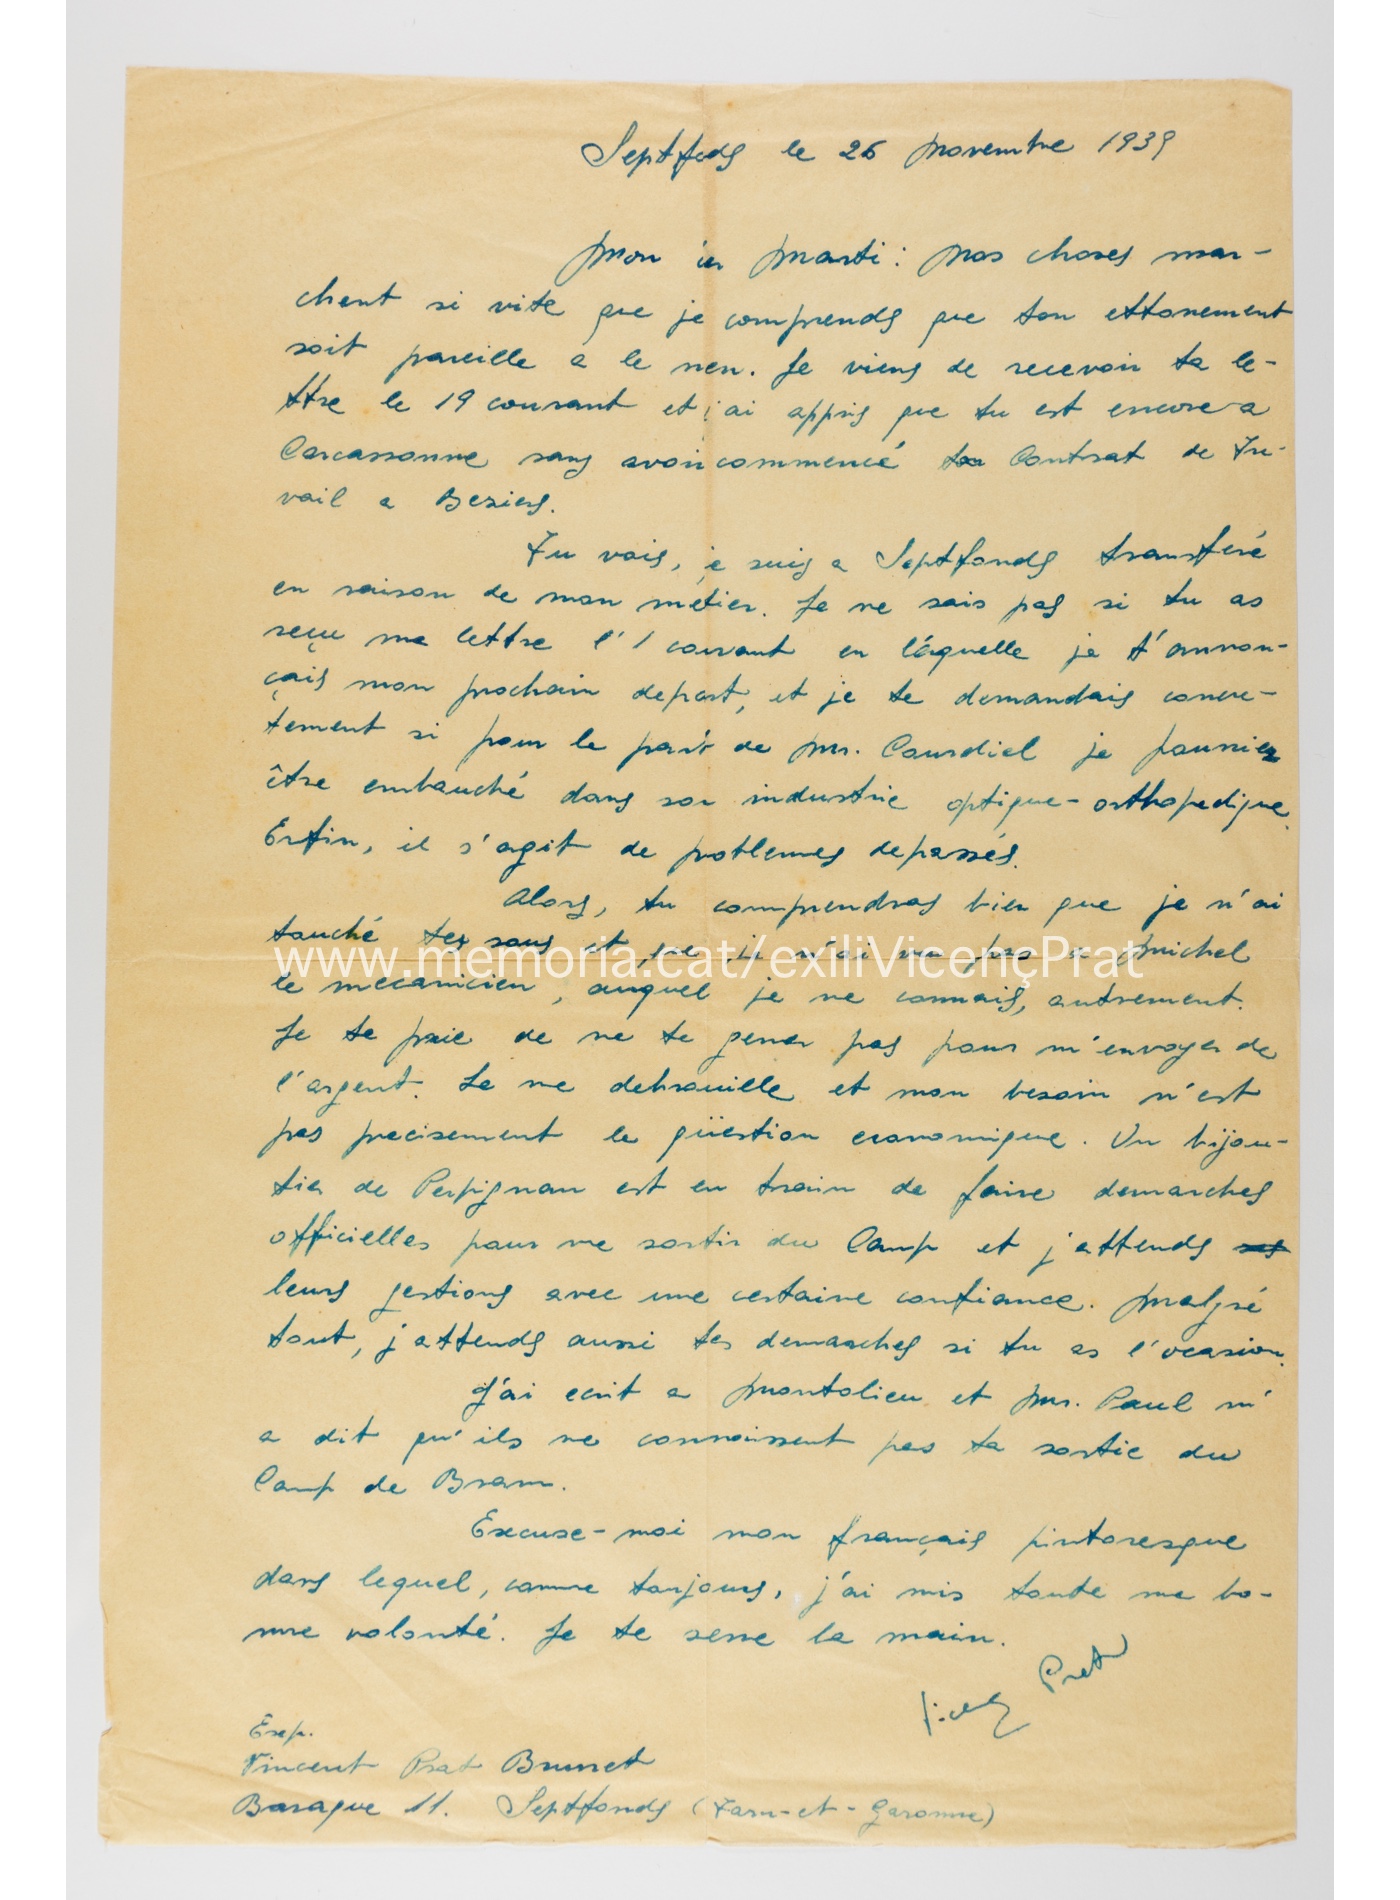 Septfods le 26 Novembre 1939
Mon Marti: Nos choses mar-
chent si vite que je comprends que ton ettonement
soit pareille a le Je viens de recevoir ta le-
ttre le 19 courant et j'ai appris que tu est encore a
Carcassonne sans avoir commencé ton Contrat de Tra-
vail a Beziers.
Tu vois, je suis a Septfonds transferé
en raison de mon métier. Je ne sais pas si tu as
reçu ma lettre l'1 courant en láquelle je t'annon-
çais mon prochain depart, et je te demandais concre-
tement si pour le part de Mr. Courdiel je
être embauché dans son industrie optique-orthopedique.
Enfin, il s'agit de problemes depassés.
Alors, tu comprendras bien que je n'ai
touché tes sous et que je n'ai vu pas a Michel
le mecanicien, auquel je ne connais, autrement.
Je te prie de ne te gener pas pour m'envoyer de
l'argent. Je me debrouille et mon besoin n'est
pas precisement le qüestion economique. Un bijou-
tier de Perpignan est en train de faire demarches
officielles pour me sortir du Camp et j'attends
leurs gestions avec une certaine confiance. Malgré
tout, j'attends aussi tes demarches si tu as l'ocasion.
J'ai ecrit a Montolieu et Mr. Paul m'
a dit qu'ils ne connaissent pas ta sortie du
Camp de Bram.
Excuse-moi mon français pintoresque
dans lequel, comme toujours, j'ai mis toute ma bo-
nne volonté. Je te serre la main.
Prat
Exp.
Vincent Prat Brunet
Baraque 11. Septfonds (Tarn-et-Garonne)
www.memoria.cat/exiliVicençPrat